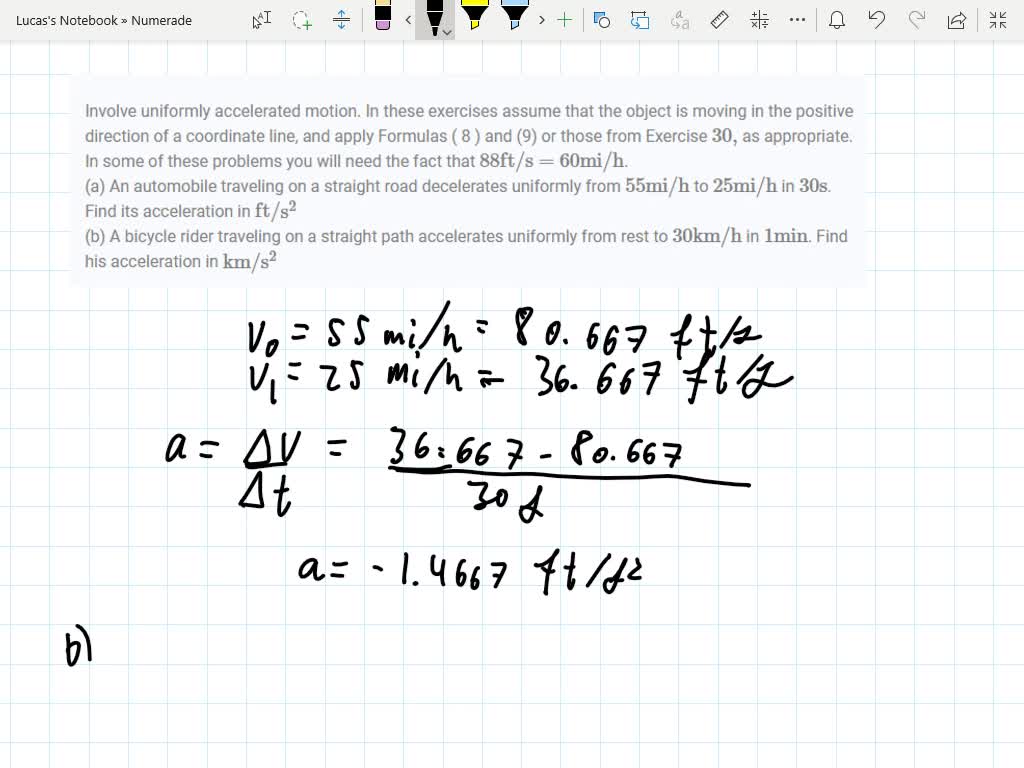 Lucas's Notebook » Numerade
Involve uniformly accelerated motion. In these exercises assume that the object is moving in the positive
direction of a coordinate line, and apply Formulas ( 8 ) and (9) or those from Exercise 30, as appropriate.
In some of these problems you will need the fact that 88ft/s = 60mi/h.
(a) An automobile traveling on a straight road decelerates uniformly from 55mi/h to 25mi/h in 30s.
Find its acceleration in ft/s²
(b) A bicycle rider traveling on a straight path accelerates uniformly from rest to 30km/h in 1min. Find
his acceleration in km/s²
V₀ = 55 mi/h = 80.667 ft/s
V₁ = 25 mi/h = 36.667 ft/s
a = ΔV = 36.667 - 80.667
Δt 30 s
a = -1.4667 ft/s²
b)